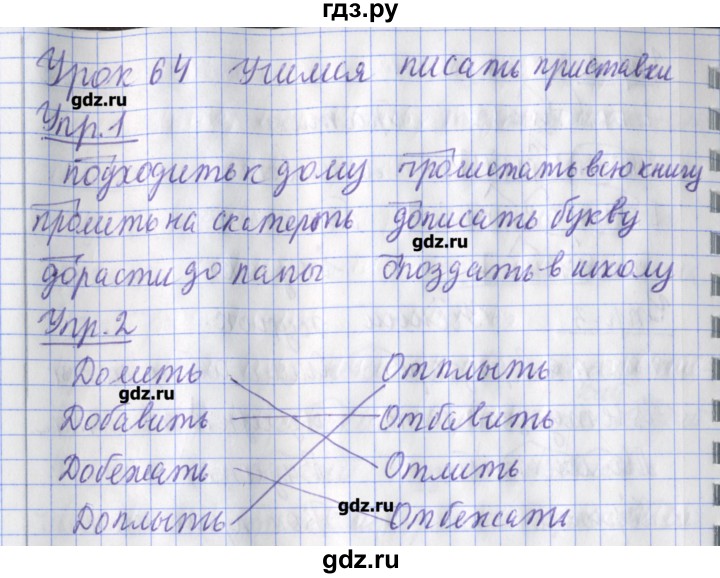 гдз.ру
Урок 64 Учимся писать приставки
gdz.ru
Упр.1
подходить к дому пролистать всю книгу
пролить на скатерть дописать букву
gdz.ru
дорасти до папы опоздать в школу
Упр.2
Долить Отплыть
gdz.ru
Добавить Отбавить
Добежать Отлить
gdz.ru
Доплыть Отбежать
gdz.ru